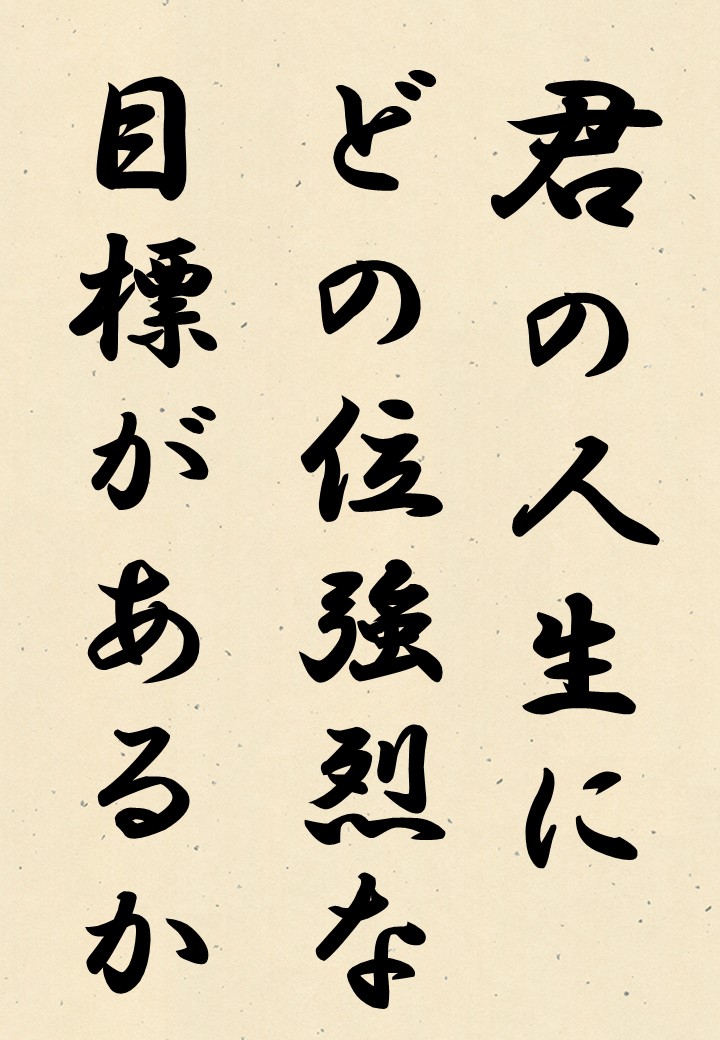 君の人生に
どの位強烈な
目標があるか